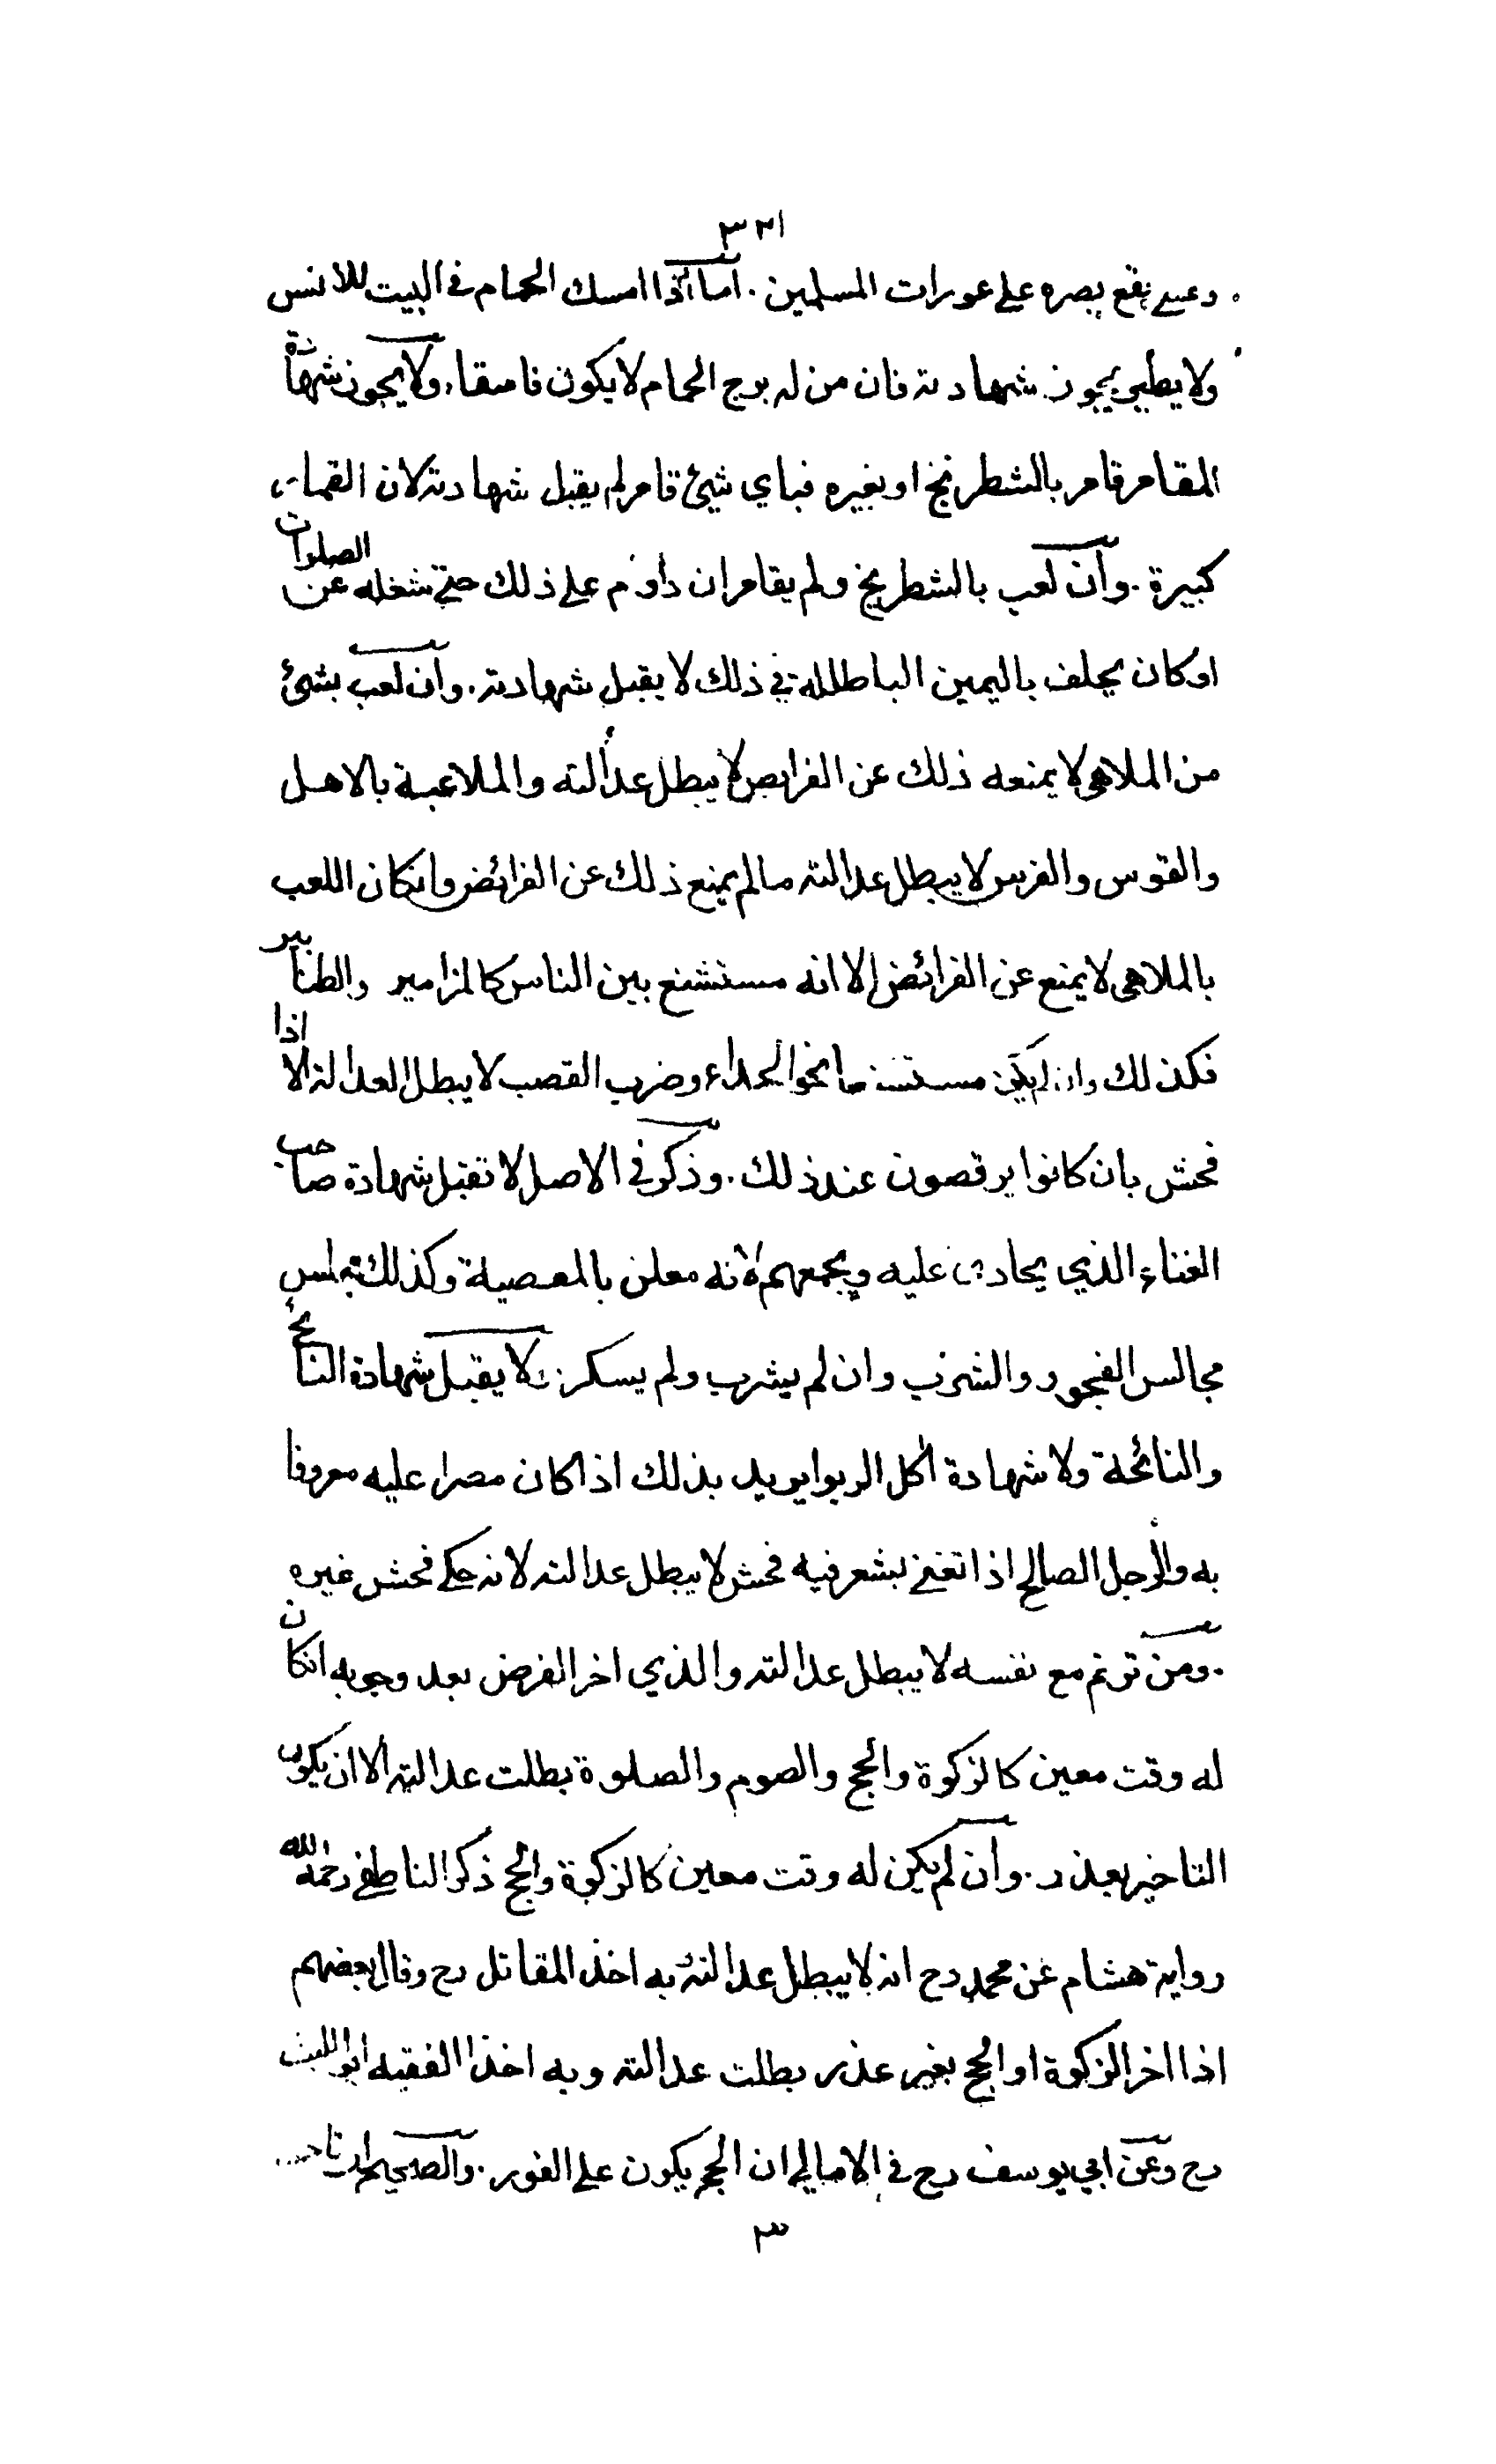 ٣٢١
يقع بصره على عورات المسلمين . اما اذا امسك الحمام فى البيت للانس
ولا يطير يجوز شهادته فان من له برج الحمام لا يكون فاسقا . ولا يجوز شهادة
المقامر قامر بالشطرنج او بغيره فباي شيئ قامر لم يقبل شهادته لان القمار
كبيرة . وان لعب بالشطرنج ولم يقامر ان داوم على ذلك حتى شغله عن الصلوات
او كان يحلف باليمين الباطلة في ذلك لا يقبل شهادته . وان لعب بشئ
من الملاهى لا يمنعه ذلك عن الفرايض لا يبطل عدالته والملاعبة بالاهل
والقوس والفرس لا يبطل عدالته ما لم يمنع ذلك عن الفرائض وانكان اللعب
بالملاهى لا يمنع عن الفرائض الا انه مستشنع بين الناس كالمزامير والطنابير
فكذلك وان لم يكن مستشنعا نحو الحداء وضرب القصب لا يبطل العدالة الا اذا
فحش بان كانوا يرقصون عند ذلك . وذكر في الاصل لا تقبل شهادة صاحب
الغناء الذي يخادن عليه ويجمعهم لانه معلن بالمعصية وكذلك
مجالس الفجور والشرب وان لم يشرب ولم يسكر لا يقبل شهادة النائح
والنائحة ولا شهادة اكل الربوا يريد بذلك اذا كان مصرا عليه معروفا
به والرجل الصالح اذا تغنى بشعر فيه فحش لا يبطل عدالته لانه حكى فحش غيره
. ومن ترنم مع نفسه لا يبطل عدالته والذي اخر الفرض بعد وجوبه انكان
له وقت معين كالزكوة والحج والصوم والصلوة بطلت عدالته الا ان يكون
التاخير بعذر . وان لم يكن له وقت معين كالزكوة والحج ذكر الناطفى رحمه الله
رواية هشام عن محمد رح انه لا يبطل عدالته به اخذ المقاتل رح وقال بعضهم
اذا اخر الزكوة او الحج بغير عذر بطلت عدالته وبه اخذ الفقيه ابو الليث
رح وعن ابي يوسف رح في الامالي ان الحج يكون على الفور . والصحيح ان
٣